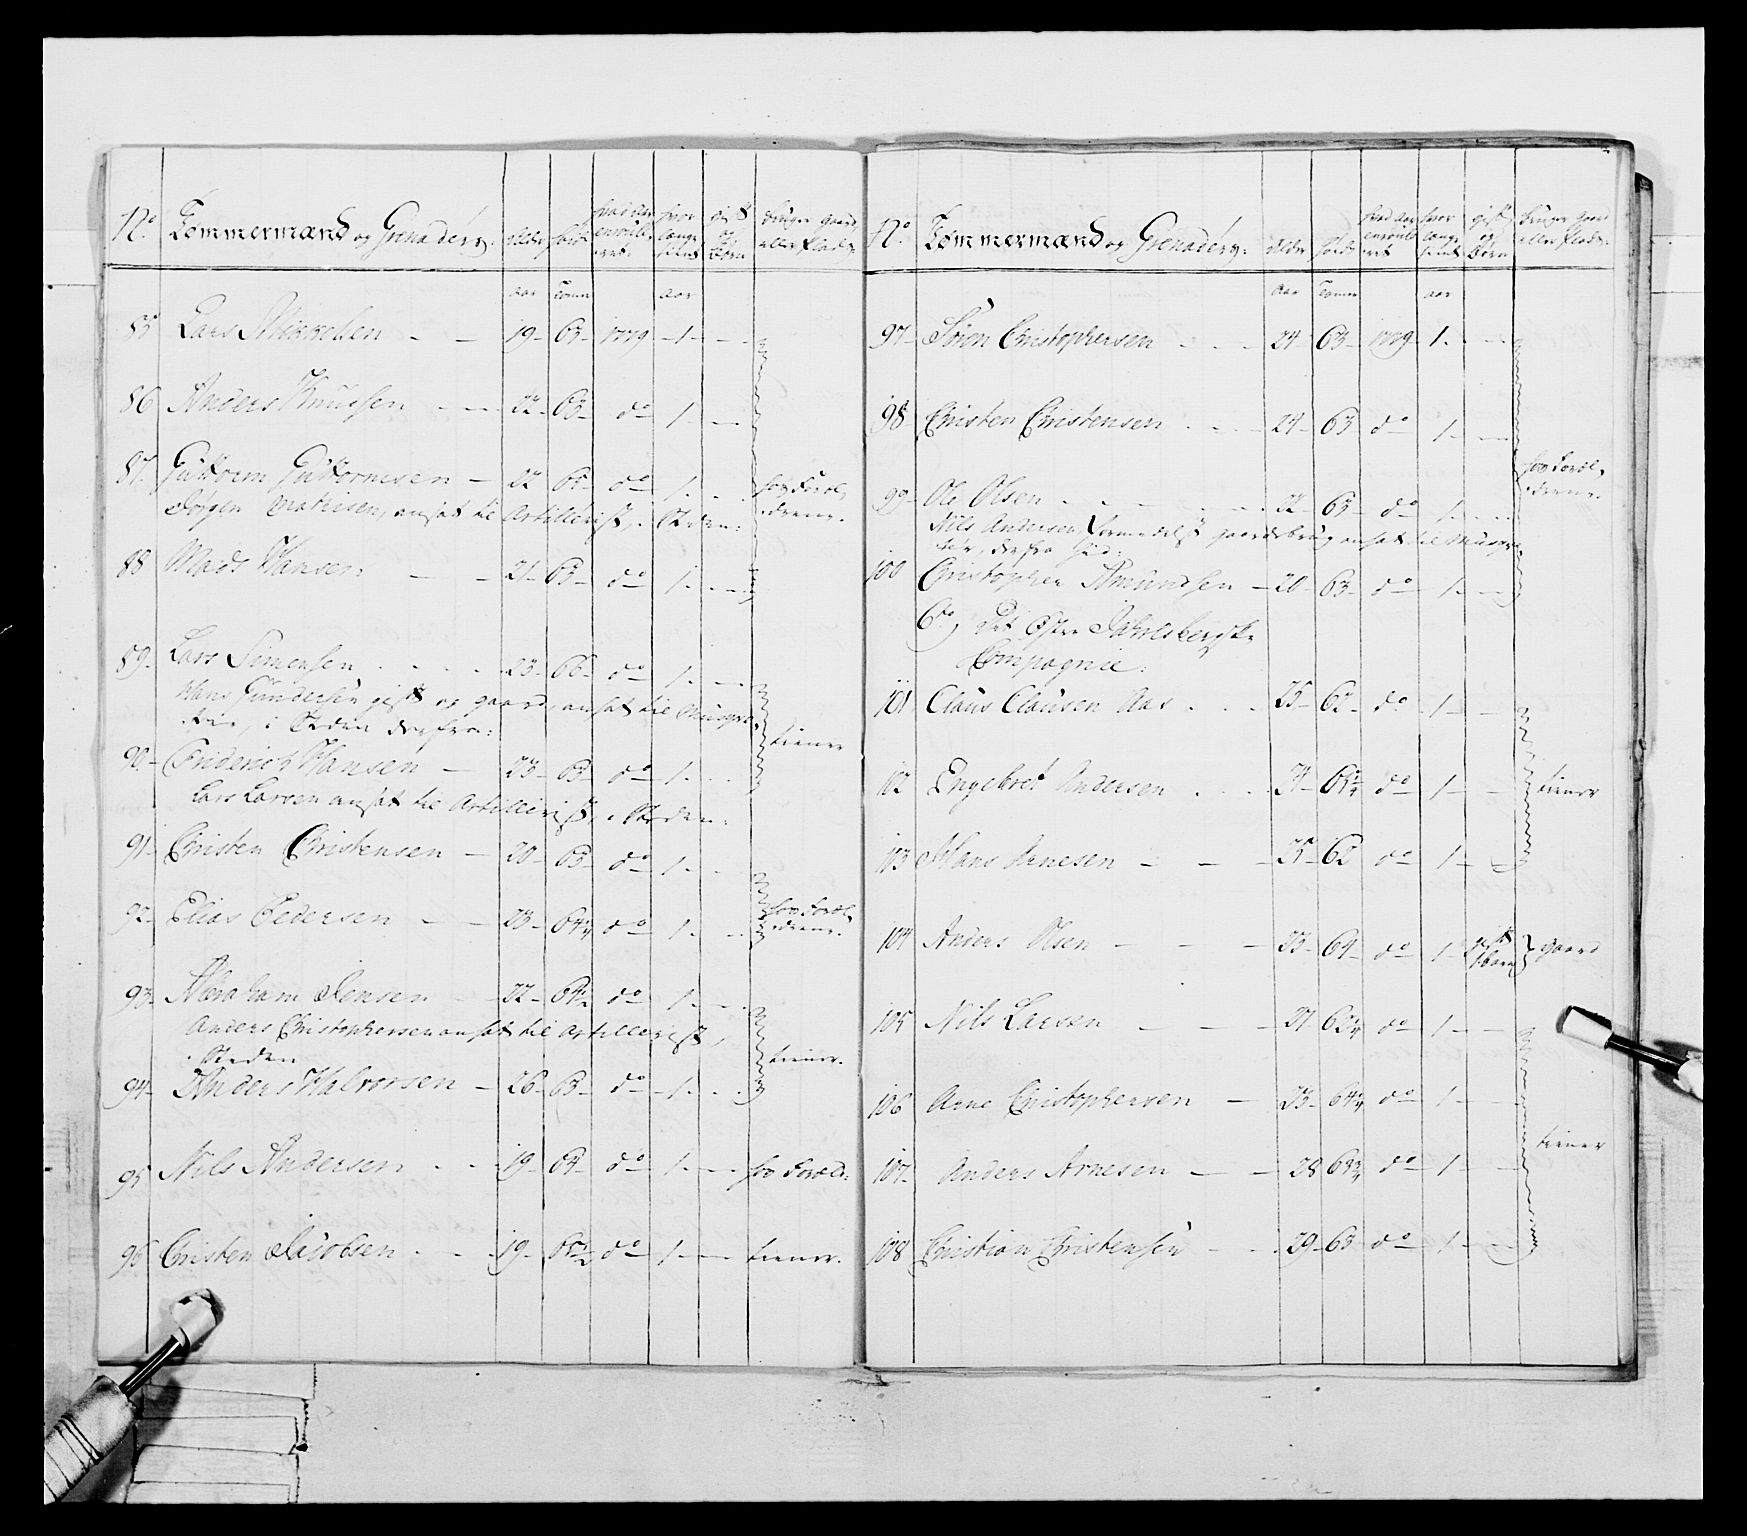 No. Tømmermænd og Grenaderg: alder høide hvad Aar enroule- ret hvor længe tient gift og Børn bruger gaard eller Plads:
aar Tomm aar
85 Lars Mikkelsen 19- 63- 1779 -1-
86 Anders Knudsen 22- 63- do 1.
87. Guttorm Guttormsen 22 65- do 1. hos Foræl-
Jørgen Mathisen, ansat til Artillerist, i Steden: drene.
88 Mads Hansen 21- 63- do 1.
89. Lars Simensen 23- 66- do 1.
Hans Gundersen gift og gaard, ansat til Musque-
teer, i Steden derfra: tiener
90- Friderich Hansen 23- 63- do 1.
Lars Larsen ansat til Artillerist, i Steden:
91- Christen Christensen 20- 63- do 1.
92- Elias Pedersen 23- 64¼ do 1. hos Foræl-
drene.
93- Abraham Jensen 22- 64½ do 1.
Anders Christophersen ansat til Artillerist,
i Steden tiener.
94- Anders Halvorsen 26- 63- do 1.
95 Nils Andersen 19- 64- do 1. hos Foræld:
96 Christen Jacobsen 19- 65½ do 1. tiener.
No. Tømmermænd og Grenaderg: alder høide hvad Aar enroule- ret hvor længe tient gift og Børn bruger gaard eller Plads:
aar Tomm aar
97- Søren Christophersen 24 63- 1779 1.
98 Christen Christensen 24- 63 do 1.
hos Foræl-
99- Ole Olsen 22- 63- do 1. drene.
Nils Andersen formedelst gaardsbrug ansat til Musque-
teer, derfra hid:
100 Christopher Amundsen 20- 63- do 1.
6to, Det Østre Jahrlsbergske
Compagnie:
101 Claus Clausen Aas 25- 62- do 1
102 Engebret Andersen 21- 65¼ do 1 tiener
103 Hans Arnesen 25- 62 do 1
104 Anders Olsen 33- 64- do 1 gift 1 barn gaard
105 Nils Larsen 21 62¼ do 1
106 Arne Christophersen 23- 64¼ do 1
tiener
107- Anders Arnesen 28 63¾ do 1
108 Christian Christensen 29- 63- do 1